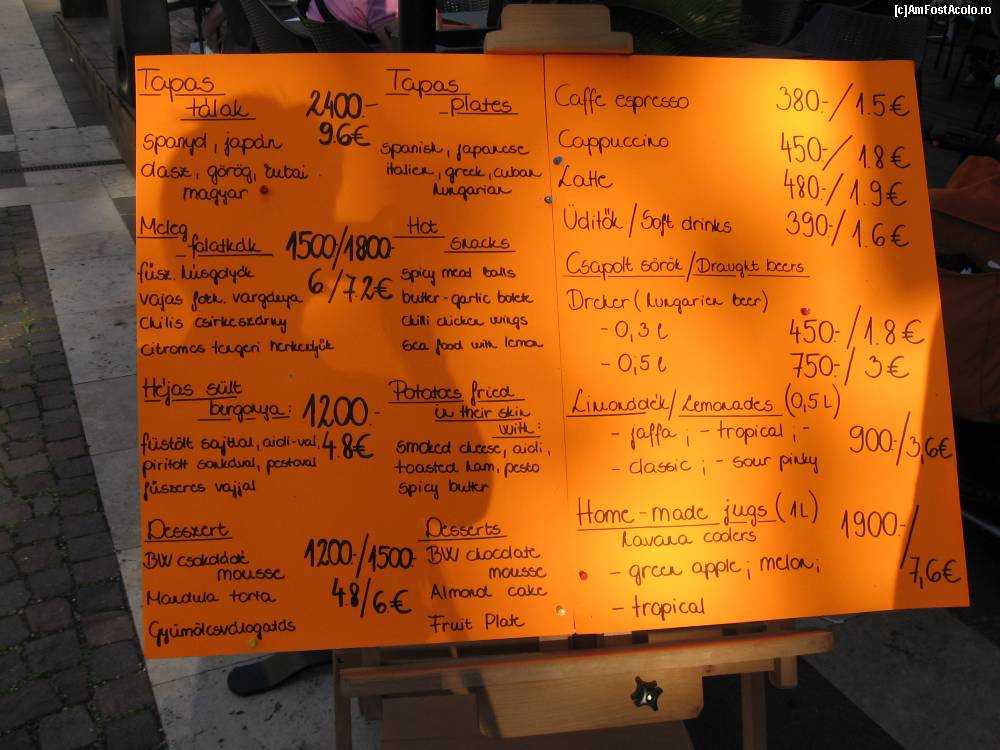 [c]AmFostAcolo.ro
Tapas
tálak
2400.-
9.6€
spanyol, japán
olasz, görög, kubai
magyar
Tapas
plates
Spanish, japanese
italien, greek, cuban
hungarian
Meleg
falatkák
1500/1800.-
6/7.2€
fűsz. húsgolyók
vajas fokh. vargánya
Chilis csirkeszárny
Citromos tengeri herkentyűk
Hot
snacks
Spicy meat balls
butter-garlic bolete
Chilli chicken wings
Sea food with lemon
Héjas sült
burgonya:
1200.-
4.8€
füstölt sajttal, aioli-val,
pirított sonkával, pestoval
fűszeres vajjal
Potatoes fried
in their skin
with:
smoked cheese, aioli,
toasted ham, pesto
spicy butter
Desszert
1200.-/1500.-
4.8/6.€
BW csokoládé
mousse
Mandula torta
Gyümölcsválogatás
Desserts
BW chocolate
mousse
Almond cake
Fruit Plate
Caffe espresso 380.-/1.5€
Cappuccino 450.-/1.8€
Latte 480.-/1.9€
Üdítők/Soft drinks 390.-/1.6€
Csapolt sörök/Draught beers
Dreher (hungarien beer)
- 0,3 l 450.-/1.8€
- 0,5 l 750.-/3€
Limonádék/Lemonades (0,5L)
- jaffa ; - tropical ; -
900.-/3,6€
- classic ; - sour pinky
Home-made jugs (1L)
1900.-/7,6€
havana coolers
- green apple ; melon ;
- tropical